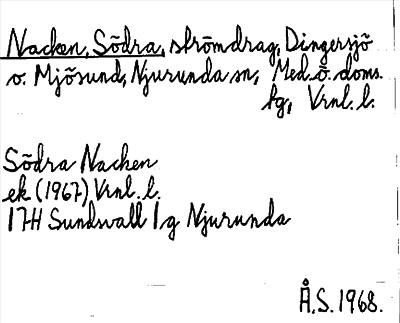 Nacken, Södra, strömdrag, Dingersjö
o. Mjösund, Njurunda sn, Med. ö. doms.
tg, Vrnl. l.
Södra Nacken
ek (1967) Vrnl. l.
17H Sundsvall 1g Njurunda
Å.S. 1968.